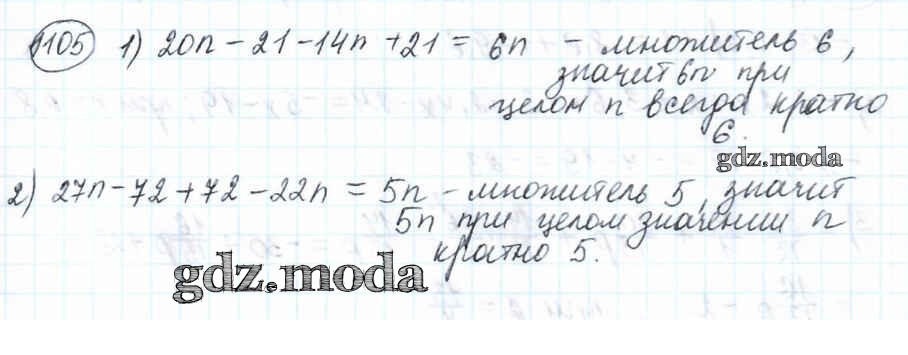 1105 1) 20n - 21 - 14n + 21 = 6n - множитель 6,
значит 6n при
целом n всегда кратно
6.
gdz.moda
2) 27n - 72 + 72 - 22n = 5n - множитель 5, значит
5n при целом значении n
кратно 5.
gdz.moda